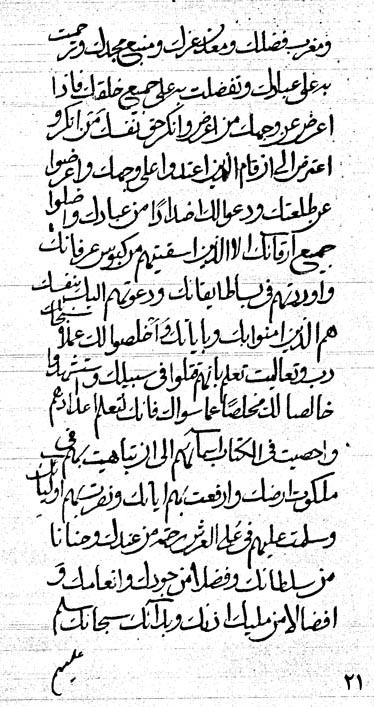 ومغرب فضلك ومعدن عزك ومنبع مجدك وترحمت
به علی عبادك وتفضلت به علی جمیع خلقك فاذا
اعرض عن وجهك من اعرض وانكر حق نفسك من انكر و
اعترض الی ان قام الذین اعتدوا علی وجهك واعرضوا
عن طلعتك ودعوا لك اضدادا من عبادك واضلوا
جمیع ارقائك الا الذین اسقیتهم من كئوس عرفانك
واوردتهم فی بساط ایقانك ودعوتهم الیك بنفسك
هم الذین امنوا بك وبایاتك وأخلصوا لك عملهم
رب وتعالیت تعلم بانهم قتلوا فی سبیلك واستشهدوا
خالصا لك مخلصا عما سواك فانك لتعلم اعدادهم
واحصیت فی الكتاب اسمائهم الی ان تباهیت بهم فی
ملكوت ارضك وارفعت بهم ایاتك ونصرت بهم اولیائك
وسلمت علیهم فی علی العرش رحمة من عندك وحنانا
من سلطانك وفضلا من جودك وانعامك و
افضالا من ملیك اذنك وبدآئك سبحانك سلم
علیهم
۲۱